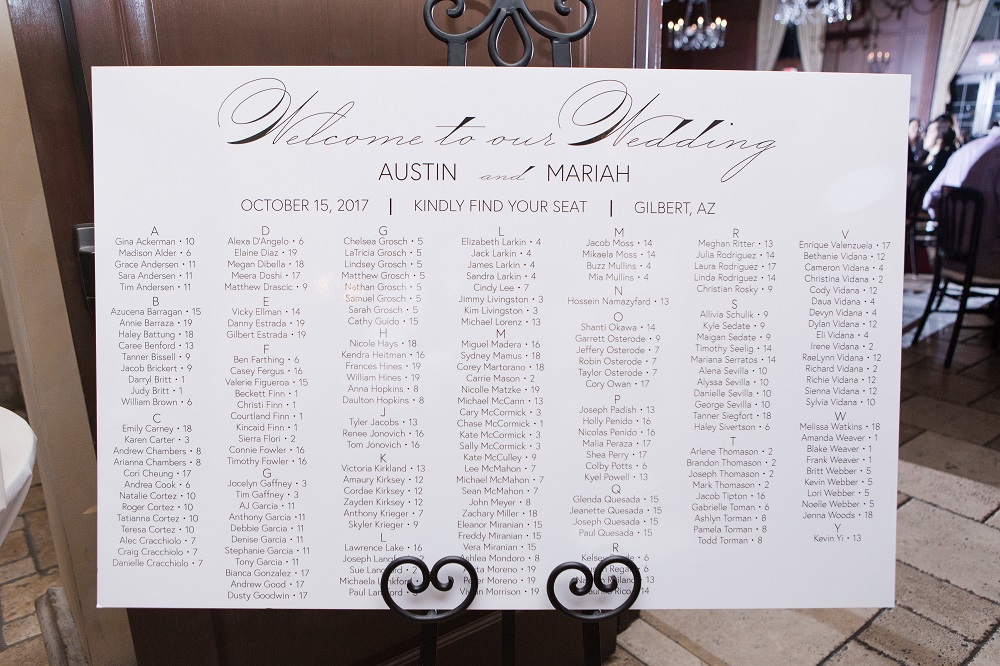 Welcome to our Wedding
AUSTIN and MARIAH
OCTOBER 15, 2017 | KINDLY FIND YOUR SEAT | GILBERT, AZ
A
Gina Ackerman • 10
Madison Alder • 6
Grace Andersen • 11
Sara Andersen • 11
Tim Andersen • 11
B
Azucena Barragan • 15
Annie Barraza • 19
Haley Battung • 18
Caree Benford • 13
Tanner Bissell • 9
Jacob Brickert • 9
Darryl Britt • 1
Judy Britt • 1
William Brown • 6
C
Emily Carney • 18
Karen Carter • 3
Andrew Chambers • 8
Arianna Chambers • 8
Cori Cheung • 17
Andrea Cook • 6
Natalie Cortez • 10
Roger Cortez • 10
Tatianna Cortez • 10
Teresa Cortez • 10
Alec Cracchiolo • 7
Craig Cracchiolo • 7
Danielle Cracchiolo • 7
D
Alexa D'Angelo • 6
Elaine Diaz • 19
Megan Dibella • 18
Meera Doshi • 17
Matthew Drascic • 9
E
Vicky Ellman • 14
Danny Estrada • 19
Gilbert Estrada • 19
F
Ben Farthing • 6
Casey Fergus • 16
Valerie Figueroa • 15
Beckett Finn • 1
Christi Finn • 1
Courtland Finn • 1
Kincaid Finn • 1
Sierra Flori • 2
Connie Fowler • 16
Timothy Fowler • 16
G
Jocelyn Gaffney • 3
Tim Gaffney • 3
AJ Garcia • 11
Anthony Garcia • 11
Debbie Garcia • 11
Denise Garcia • 11
Stephanie Garcia • 11
Tony Garcia • 11
Bianca Gonzalez • 17
Andrew Good • 17
Dusty Goodwin • 17
G
Chelsea Grosch • 5
LaTricia Grosch • 5
Lindsey Grosch • 5
Matthew Grosch • 5
Nathan Grosch • 5
Samuel Grosch • 5
Sarah Grosch • 5
Cathy Guido • 15
H
Nicole Hays • 18
Kendra Heitman • 16
Frances Hines • 19
William Hines • 19
Anna Hopkins • 8
Daulton Hopkins • 8
J
Tyler Jacobs • 13
Renee Jonovich • 16
Tom Jonovich • 16
K
Victoria Kirkland • 13
Amaury Kirksey • 12
Cordae Kirksey • 12
Zayden Kirksey • 12
Anthony Krieger • 7
Skyler Krieger • 9
L
Lawrence Lake • 16
Joseph Langford • 2
Sue Langford • 2
Michaela Lankford
Paul Lankford
L
Elizabeth Larkin • 4
Jack Larkin • 4
James Larkin • 4
Sandra Larkin • 4
Cindy Lee • 7
Jimmy Livingston • 3
Kim Livingston • 3
Michael Lorenz • 13
M
Miguel Madera • 16
Sydney Mamus • 18
Corey Martorano • 18
Carrie Mason • 2
Nicolle Matzke • 19
Michael McCann • 13
Cary McCormick • 3
Chase McCormick • 1
Kate McCormick • 3
Sally McCormick • 3
Kate McCulley • 9
Lee McMahon • 7
Michael McMahon • 7
Sean McMahon • 7
John Meyer • 8
Zachary Miller • 18
Eleanor Miranian • 15
Freddy Miranian • 15
Vera Miranian • 15
Ashlea Mondoro • 8
Moreno • 19
Peter Moreno • 19
Vivian Morrison • 19
M
Jacob Moss • 14
Mikaela Moss • 14
Buzz Mullins • 4
Mia Mullins • 4
N
Hossein Namazyfard • 13
O
Shanti Okawa • 14
Garrett Osterode • 9
Jeffery Osterode • 7
Robin Osterode • 7
Taylor Osterode • 7
Cory Owan • 17
P
Joseph Padish • 13
Holly Penido • 16
Nicolas Penido • 16
Malia Peraza • 17
Shea Perry • 17
Colby Potts • 6
Kyel Powell • 13
Q
Glenda Quesada • 15
Jeanette Quesada • 15
Joseph Quesada • 15
Paul Quesada • 15
R
6
6
13
14
R
Meghan Ritter • 13
Julia Rodriguez • 14
Laura Rodriguez • 17
Linda Rodriguez • 14
Christian Rosky • 9
S
Allivia Schulik • 9
Kyle Sedate • 9
Maigan Sedate • 9
Timothy Seelig • 14
Mariana Serratos • 14
Alena Sevilla • 10
Alyssa Sevilla • 10
Danielle Sevilla • 10
George Sevilla • 10
Tanner Siegfort • 18
Haley Sivertson • 6
T
Arlene Thomason • 2
Brandon Thomason • 2
Joseph Thomason • 2
Mark Thomason • 2
Jacob Tipton • 16
Gabrielle Toman • 6
Ashlyn Torman • 8
Pamela Torman • 8
Todd Torman • 8
V
Enrique Valenzuela • 17
Bethanie Vidana • 12
Cameron Vidana • 4
Christina Vidana • 2
Cody Vidana • 12
Daua Vidana • 4
Devyn Vidana • 4
Dylan Vidana • 12
Eli Vidana • 4
Irene Vidana • 2
RaeLynn Vidana • 12
Richard Vidana • 2
Richie Vidana • 12
Sienna Vidana • 12
Sylvia Vidana • 10
W
Melissa Watkins • 18
Amanda Weaver • 1
Blake Weaver • 1
Frank Weaver • 1
Britt Webber • 5
Kevin Webber • 5
Lori Webber • 5
Noelle Webber • 5
Jenna Woods • 18
Y
Kevin Yi • 13